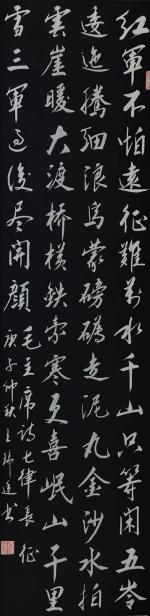 紅軍不怕遠征難万水千山只等闲五岺
逶迤腾细浪烏蒙磅礴走泥丸金沙水拍
雲崖暖大渡桥横鉄索寒更喜岷山千里
雪三軍过後尽開顔
毛主席诗七律長征
庚子仲秋王瑞书